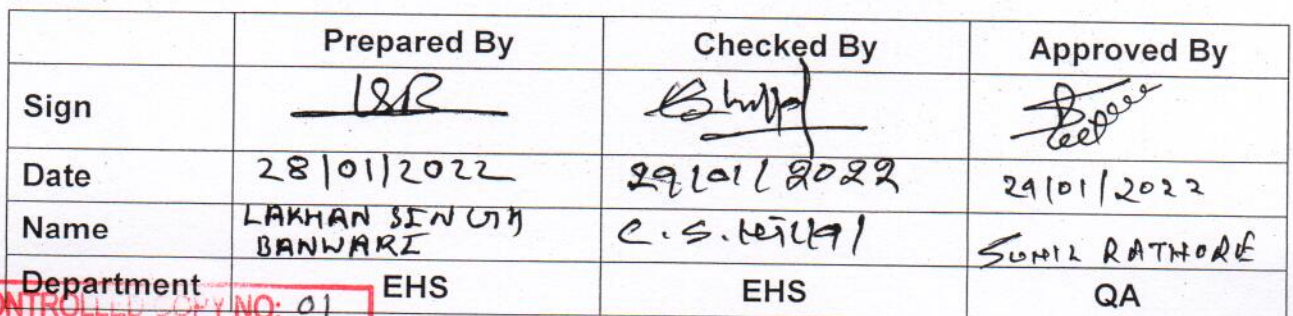 Prepared By Checked By Approved By
Sign
Date 28/01/2022 29/01/2022 29/01/2022
Name LAKHAN SINGH C.S. SUNIL RATHORE
BANWARI
Department EHS EHS QA
CONTROLLED COPY NO: 01